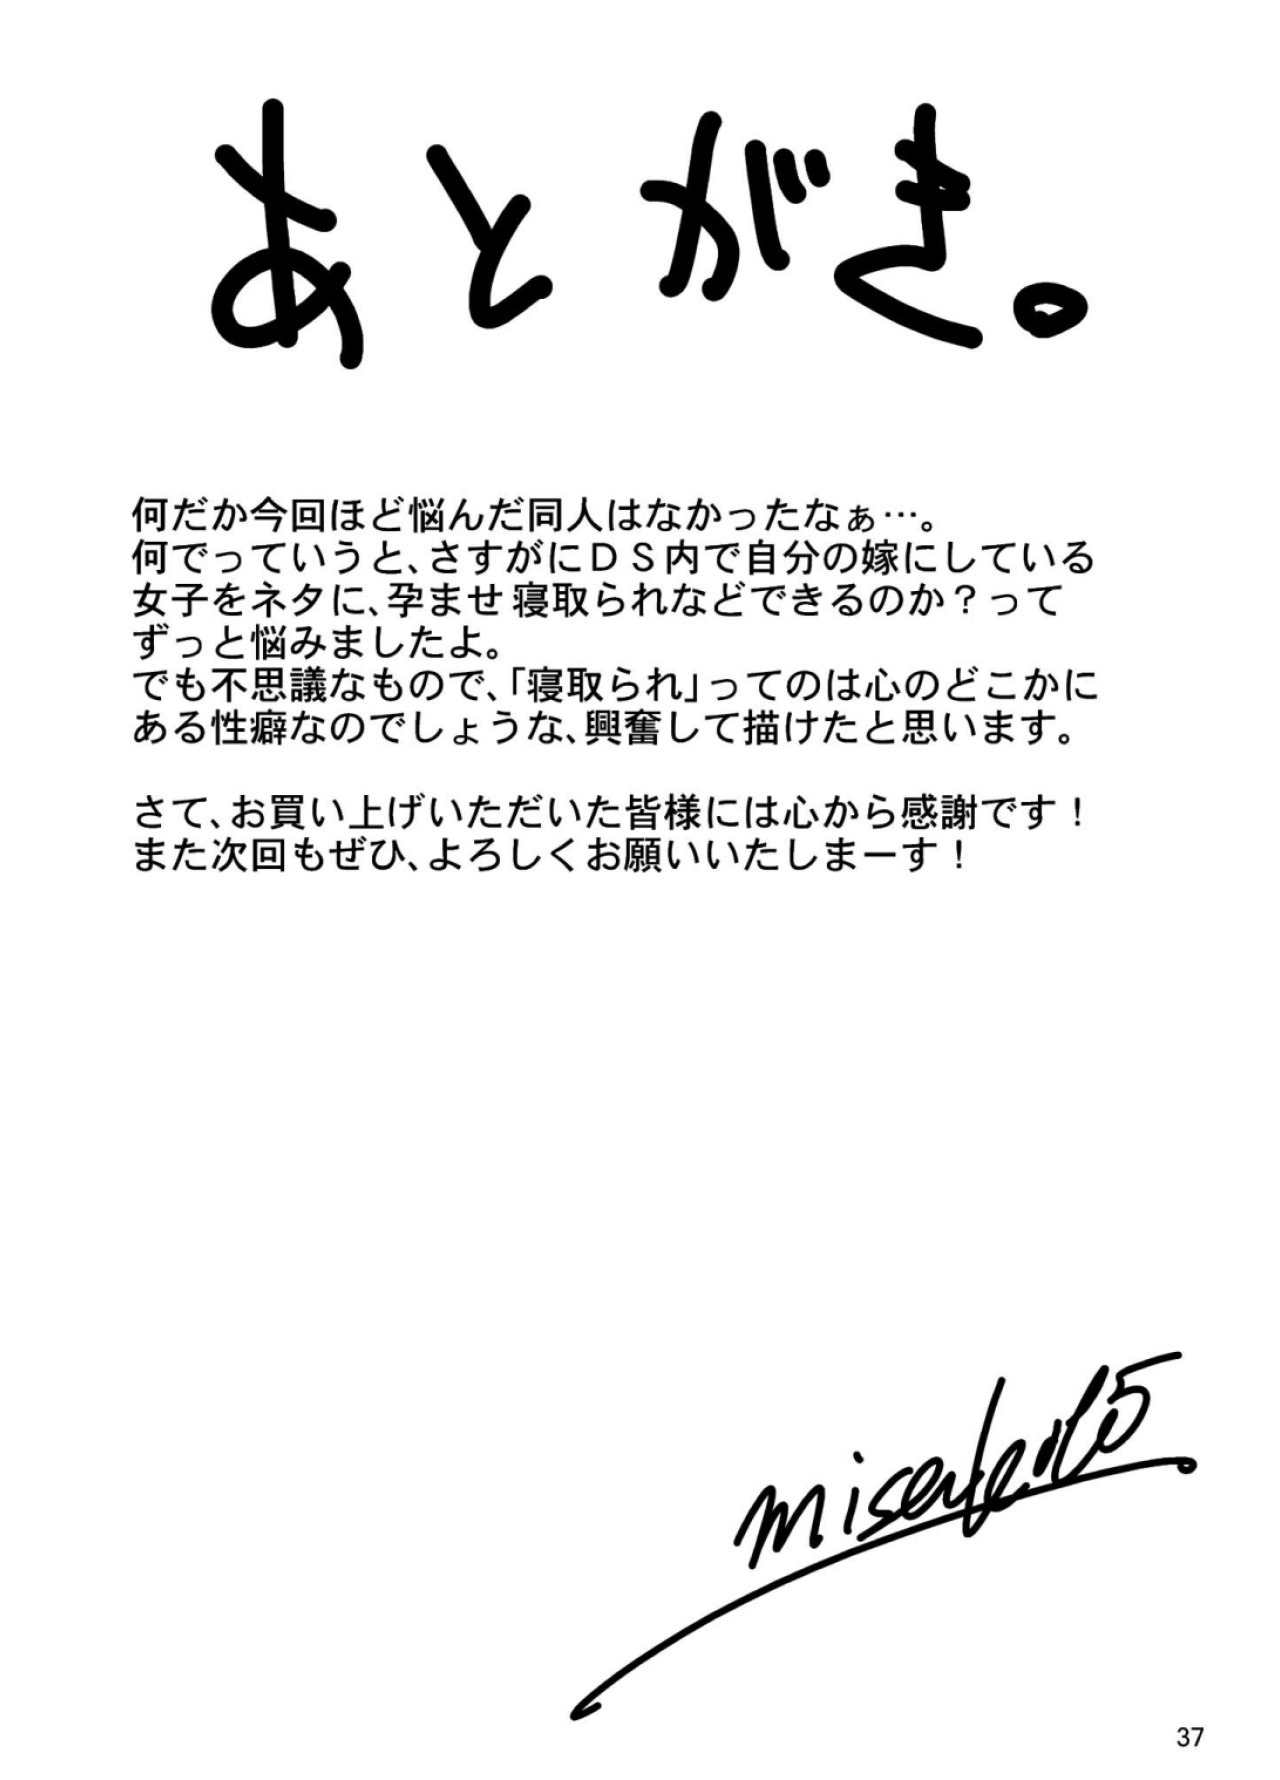 あとがき。
何だか今回ほど悩んだ同人はなかったなぁ…。
何でっていうと、さすがにＤＳ内で自分の嫁にしている
女子をネタに、孕ませ寝取られなどできるのか？って
ずっと悩みましたよ。
でも不思議なもので、「寝取られ」ってのは心のどこかに
ある性癖なのでしょうな、興奮して描けたと思います。
さて、お買い上げいただいた皆様には心から感謝です！
また次回もぜひ、よろしくお願いいたしまーす！
37